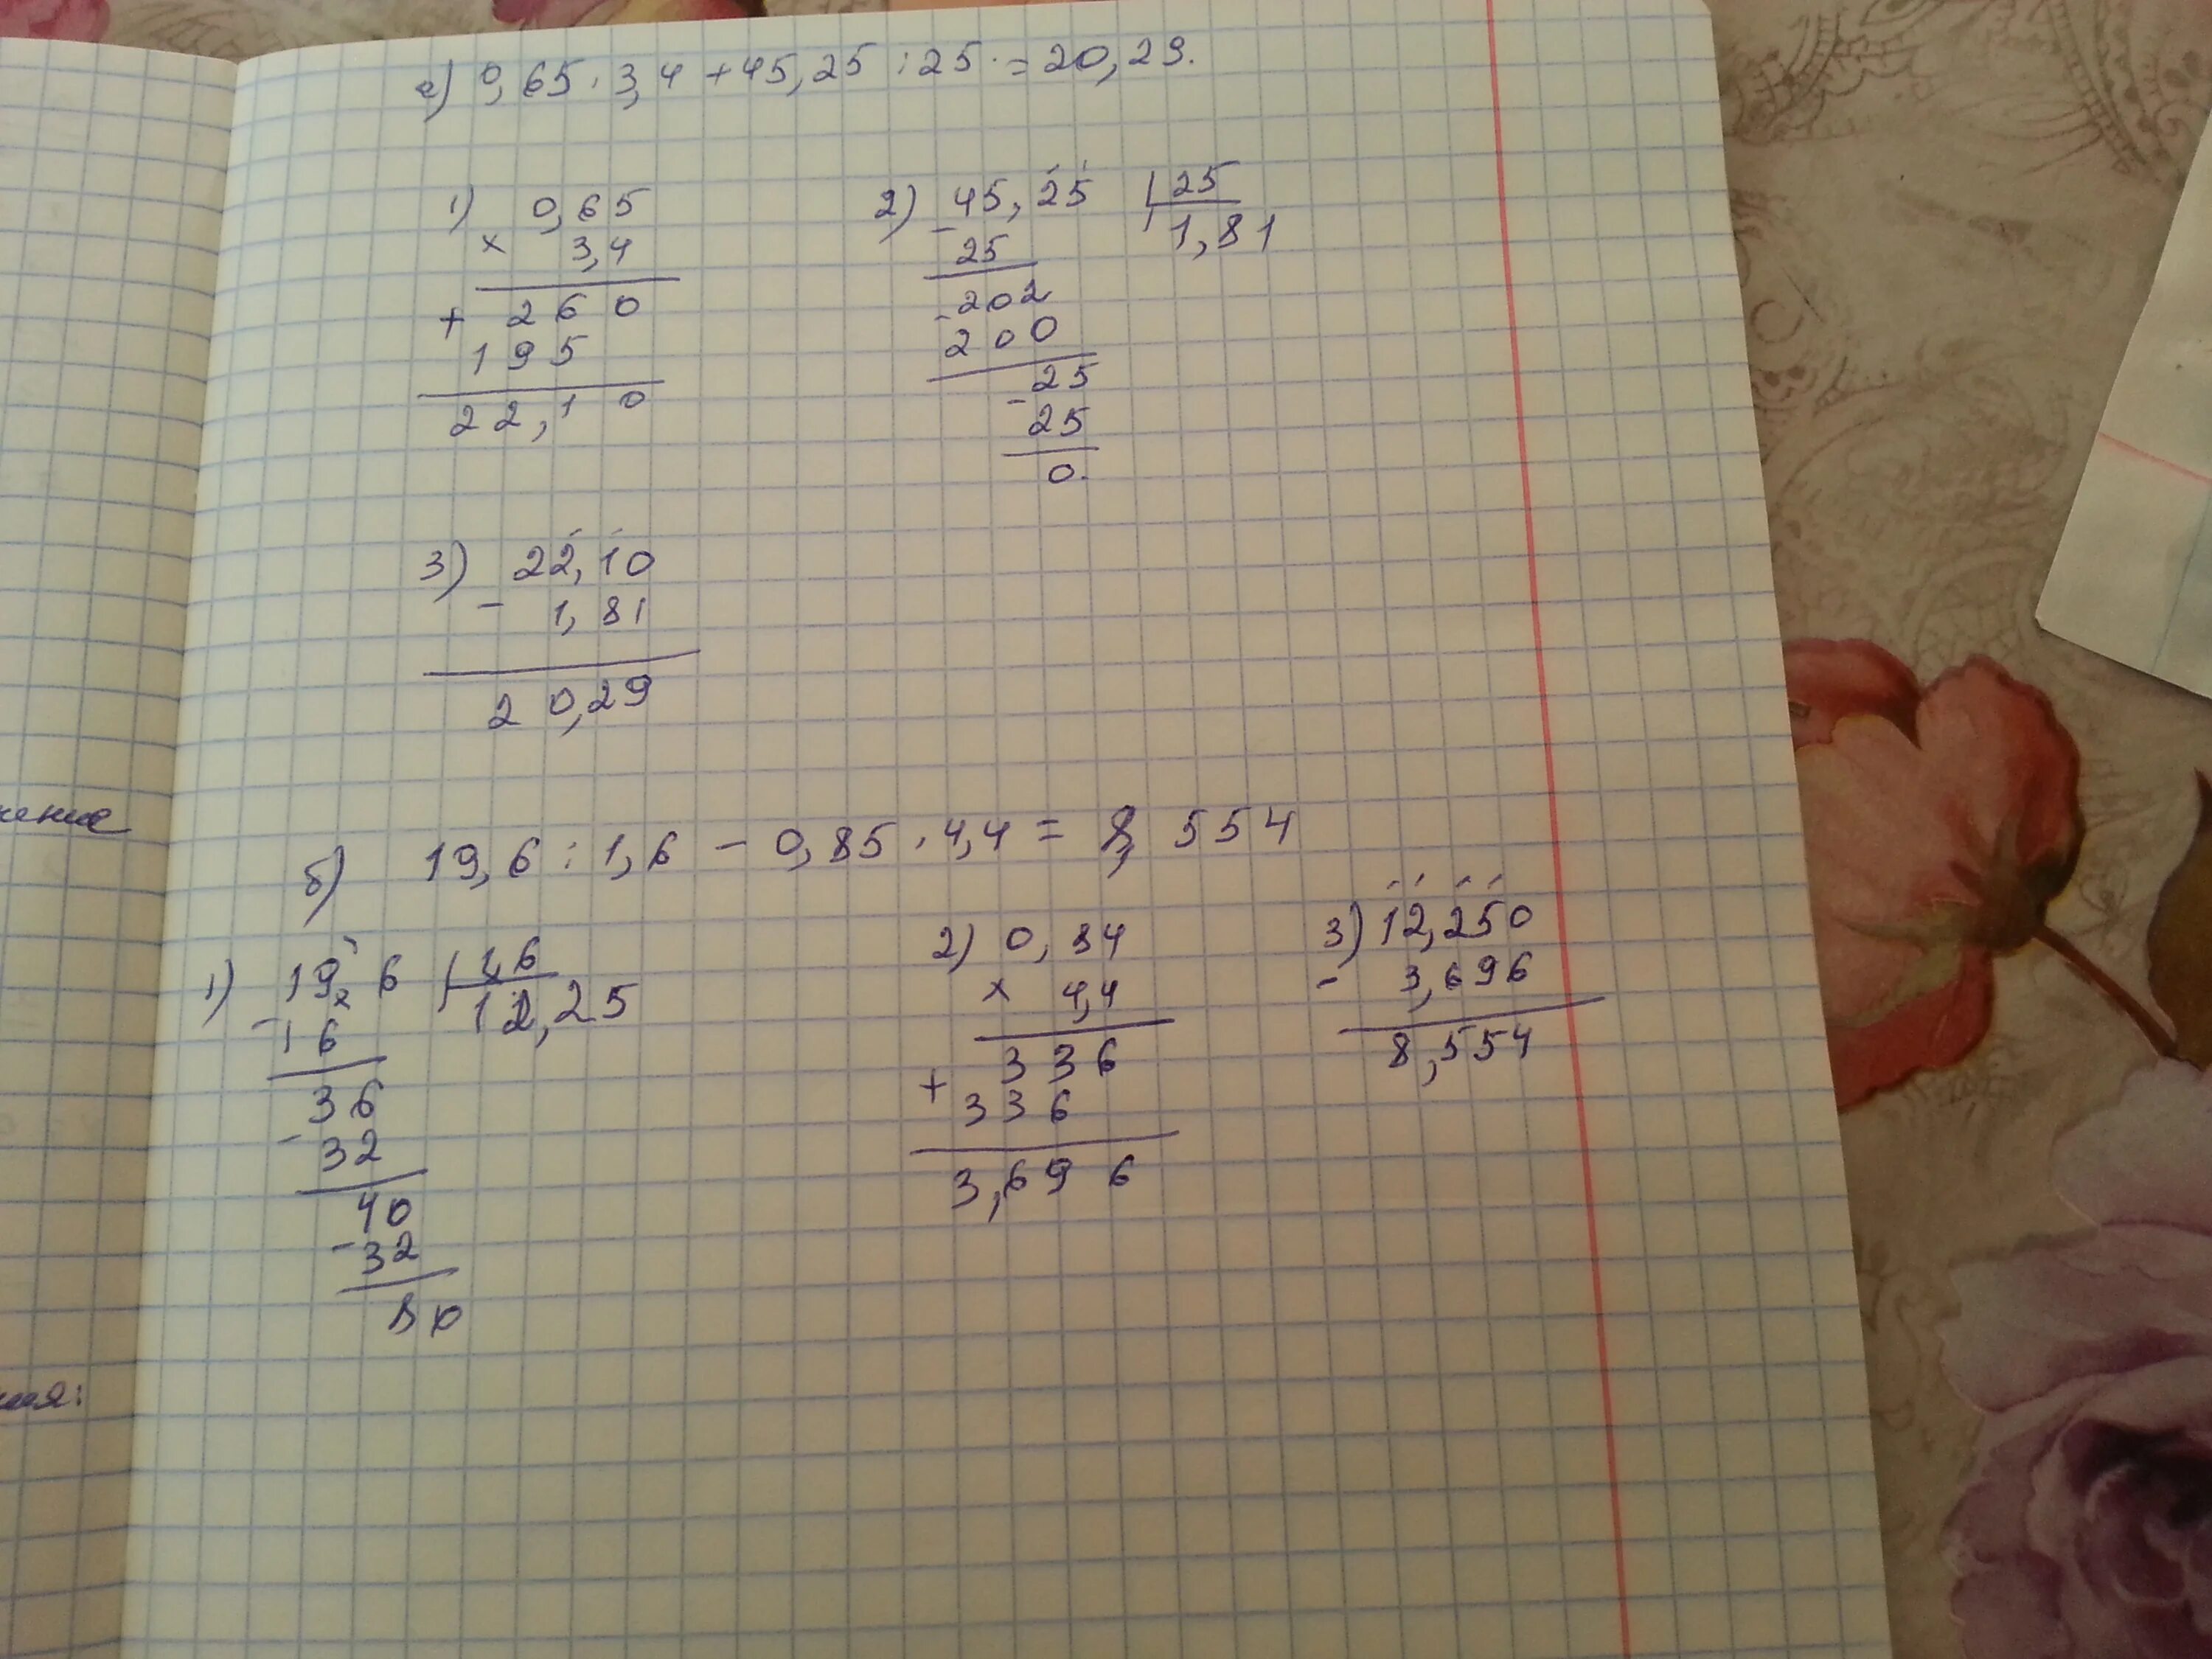 а) 0,65 · 3,4 + 45,25 : 25 · = 20,29.
1) 0,65
× 3,4
+ 260
195
22,10
2) - 45,25 | 25
1,81
25
- 202
200
- 25
25
0.
3) 22,10
- 1,81
20,29
б) 19,6 : 1,6 - 0,85 · 4,4 = 8,554
1) 19,6 | 16
12,25
- 16
36
- 32
40
- 32
80
2) 0,84
× 4,4
336
+ 336
3,696
3) 12,250
- 3,696
8,554